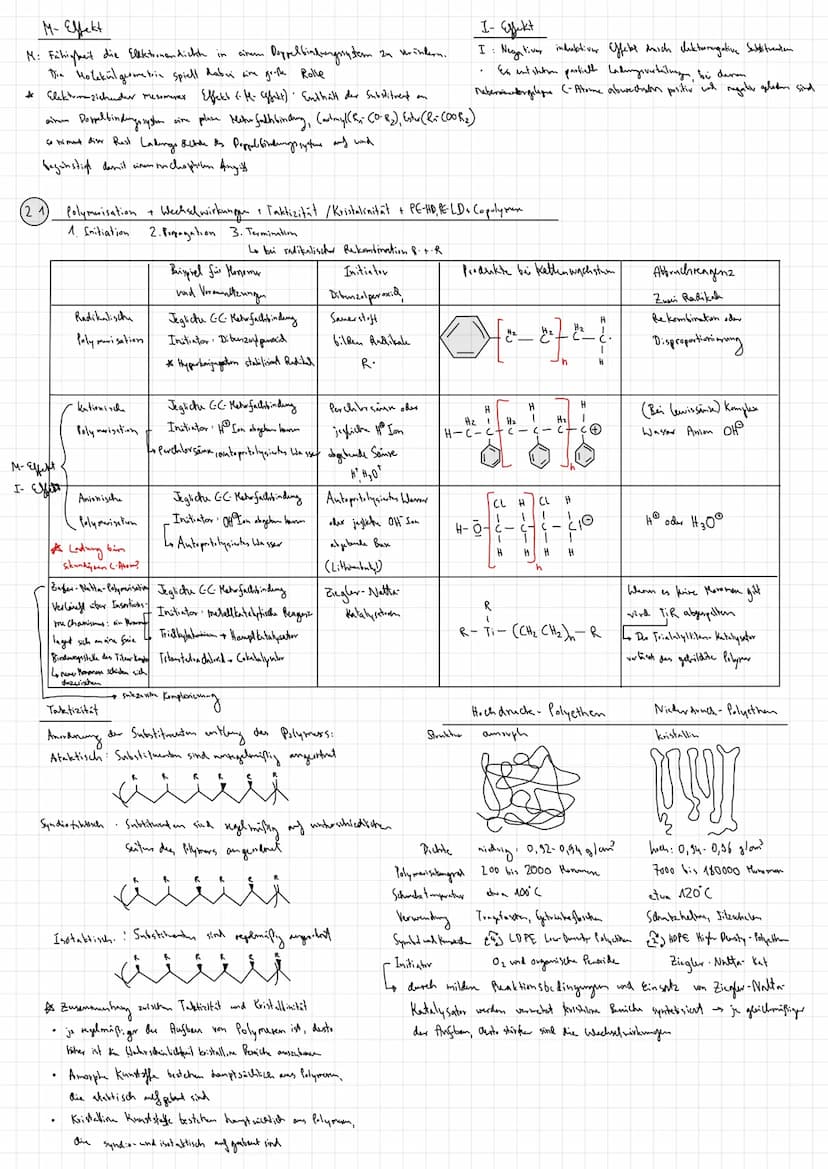 M- Effekt
M: Fähigkeit die Elektronendichte in einem Doppelbindungssystem zu verändern.
Die Molekülgeometrie spielt dabei eine große Rolle
* Elektronenziehender mesomerer Effekt (-M-Effekt): Enthält der Substituent an
einem Doppelbindungssystem eine polare Mehrfachbindung, Carbonyl (R₁-CO-R₂), Ester (R₁-COOR₂)
so nimmt dieser Rest Ladungsdichte des Doppelbindungssystems auf und
begünstigt damit einen nucleophilen Angriff
I- Effekt
I: Negativer induktiver Effekt durch elektronegative Substituenten
· Es entstehen partielle Ladungsverteilungen, bei denen
nebeneinanderliegende C-Atome abwechselnd positiv und negativ geladen sind
21 Polymerisation + Wechselwirkungen + Taktizität / Kristallinität + PE-HD, PE-LD + Copolymere
1. Initiation 2. Propagation 3. Termination
↳ bei radikalischer Rekombination R·+·R
Beispiel für Monomer
und Voraussetzungen
Initiator
Dibenzolperoxid,
Produkte bei Kettenwachstum
Abbruchreagenz
Zwei Radikale
Radikalische
Polymerisation
Jegliche C-C-Mehrfachbindung
Initiator: Dibenzoylperoxid
* Hyperkonjugation stabilisiert Radikal
Sauerstoff
bilden Radikale
R·
H₂ H₂ H₂ H
C - C - C - C·
n H
Rekombination oder
Disproportionierung
M- Effekt
I- Effekt
Kationische
Polymerisation
Jegliche C-C-Mehrfachbindung
Initiator: H⊕ Ion abgeben können
↳ Perchlorsäure, autoprotolysiertes Wasser
Perchlorsäure oder
jegliche H⊕ Ion
abgebende Säure
H⁺, H₃O⁺
H₂ H H₂ H H₂ H
H-C-C-C-C-C-C⊕
n
(Bei Lewissäure) Komplex
Wasser Anion OH⊖
Anionische
Polymerisation
* Ladung beim
ständigen C-Atom?
Jegliche C-C-Mehrfachbindung
Initiator: OH⊖ Ion abgeben können
↳ Autoprotolysiertes Wasser
Autoprotolysiertes Wasser
oder jegliche OH⁻ Ion
abgebende Base
Cl H Cl H
H-O-C-C-C-C|⊖
H H H H
n
H⊕ oder H₃O⊕
Ziegler-Natta-Polymerisation
Verläuft über Insertions-
mechanismus: ein Monomer
lagert sich an eine freie
Bindungsstelle des Titankomplex
↳ neue Monomere schieben sich
dazwischen
→ sukzessive Komplexierung
Jegliche C-C-Mehrfachbindung
Initiator: metallkatalytische Reagenz
↳ Triethylaluminium → Hauptkatalysator
Titantetrachlorid → Cokatalysator
Ziegler-Natta-
Katalysatoren
R
R-Ti-(CH₂ CH₂)n-R
Wenn es keine Monomere gibt
wird TiR abgespalten
↳ Der Katalysator
verlässt das gebildete Polymer
Taktizität
Anordnung der Substituenten entlang des Polymers:
Ataktisch: Substituenten sind unregelmäßig angeordnet
R R R R R R
Syndiotaktisch: Substituenten sind regelmäßig auf unterschiedlichen
Seiten des Polymers angeordnet
R R R R R R
Isotaktisch: Substituenten sind regelmäßig angeordnet
R R R R R R
* Zusammenhang zwischen Taktizität und Kristallinität
· je regelmäßiger der Aufbau von Polymeren ist, desto
höher ist die Wahrscheinlichkeit kristalline Bereiche auszubauen
· Amorphe Kunststoffe bestehen hauptsächlich aus Polymeren,
die ataktisch aufgebaut sind
· Kristalline Kunststoffe bestehen hauptsächlich aus Polymeren,
die syndio- und isotaktisch aufgebaut sind
Hochdruck- Polyethen Niederdruck- Polyethen
Struktur amorph kristallin
Dichte niedrig: 0,92-0,94 g/cm³ hoch: 0,94-0,96 g/cm³
Polymerisationsgrad 200 bis 2000 Monomere 7000 bis 180000 Monomere
Schmelztemperatur etwa 100°C etwa 120°C
Verwendung Tragetaschen, Getränkeflaschen Schutzhelme, Sitzschalen
Symbol und Kennzeichen LDPE Low-Density-Polyethen HDPE High-Density-Polyethen
Initiator O₂ und organische Peroxide Ziegler-Natta-Kat
↳ durch milden Reaktionsbedingungen und Einsatz von Ziegler-Natta-
Katalysator werden vermehrt kristalline Bereiche synthetisiert → je gleichmäßiger
der Aufbau, desto stärker sind die Wechselwirkungen